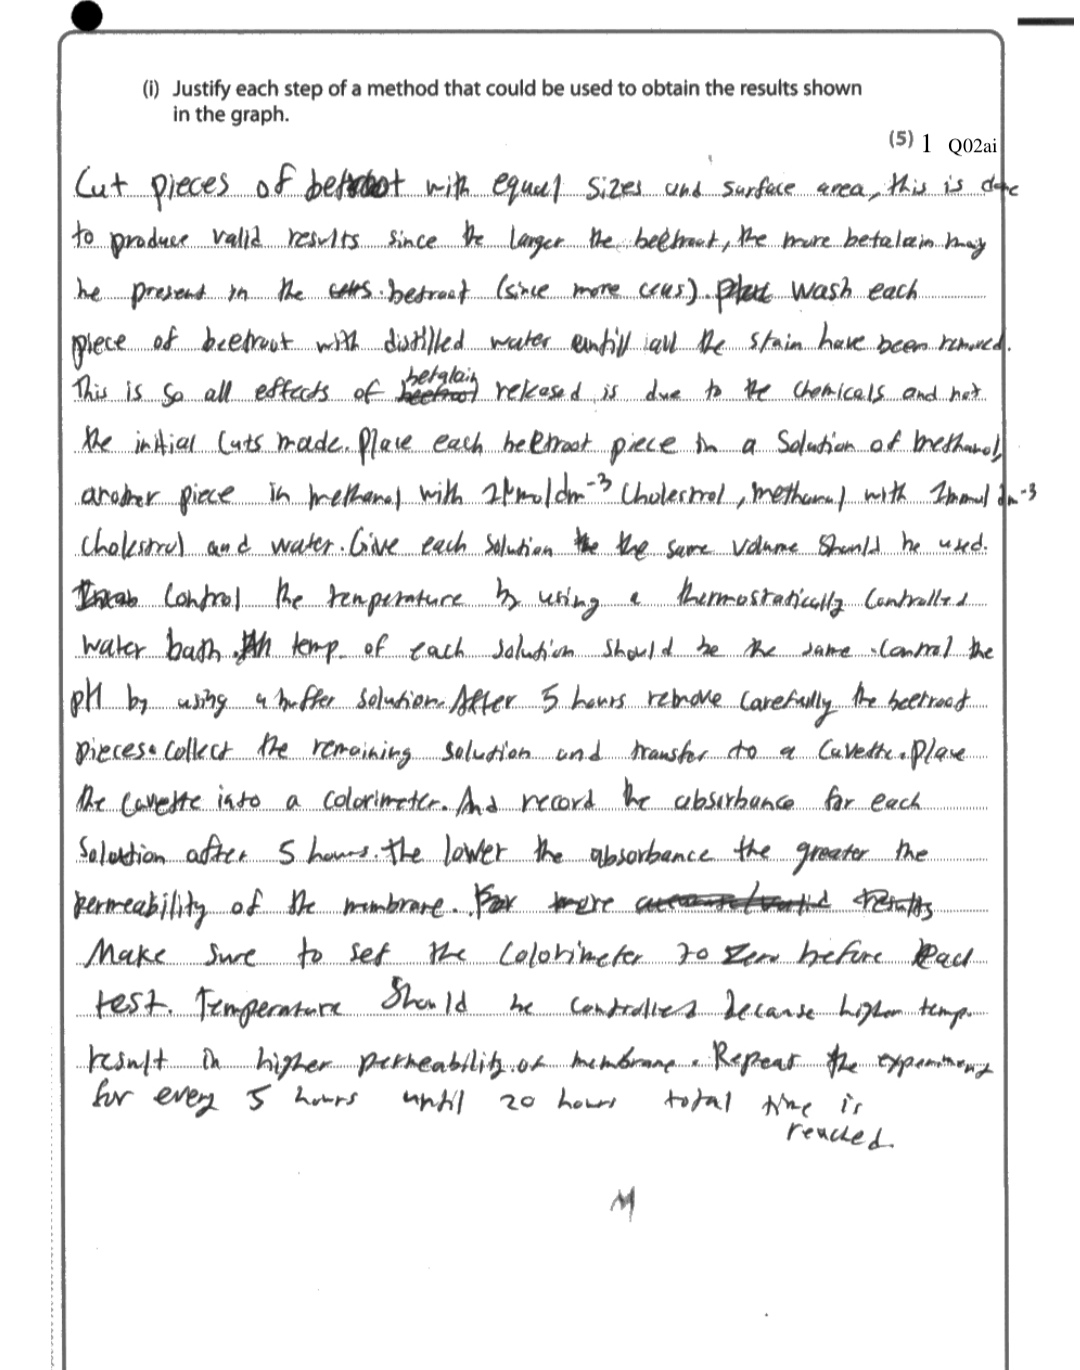 (i) Justify each step of a method that could be used to obtain the results shown
in the graph.
(5) 1 Q02ai
Cut pieces of beetroot with equal sizes and surface area, this is due
to produce valid results since the larger the beetroot, the more betalain may
be present in the cells. betroot (since more cells). Wash each
piece of beetroot with distilled water untill all the stain have been removed.
This is so all effects of betalain released is due to the chemicals and not
the initial cuts made. Place each beetroot piece in a solution of methanol,
another piece in methanol with 1μmol dm-3 cholestrol, methanol with 1mmol dm-3
cholestrol and water. Give each solution the the same volume should be used.
Control the temperature by using a thermostatically controlled
water bath. temp. of each solution should be the same. Control the
pH by using a buffer solution. After 5 hours remove carefully the beetroot
pieces. Collect the remaining solution and transfer to a cuvette. Place
the cuvette into a colorimeter. And record the absorbance for each
solution after 5 hours. the lower the absorbance the greater the
permeability of the membrane. For more results
Make sure to set the colorimeter to zero before each
test. Temperature should be controlled because higher temp.
result in higher permeability of membrane. Repeat the experiment
for every 5 hours until 20 hours total time is
reached.
M